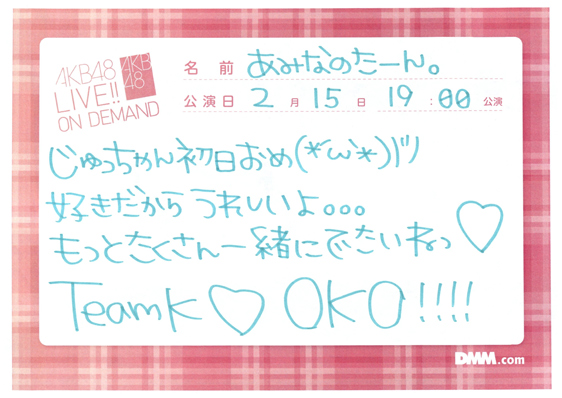 AKB48
LIVE!!
ON DEMAND
AKB
48
名前 あみなのたーん。
公演日 2月15日 19:00公演
じゅっちゃん初日おめ(*'ω'*)ﾉｼ
好きだから うれしいよ。。。
もっとたくさん一緒にでたいねっ♡
TeamK♡OKO!!!!
DMM.com